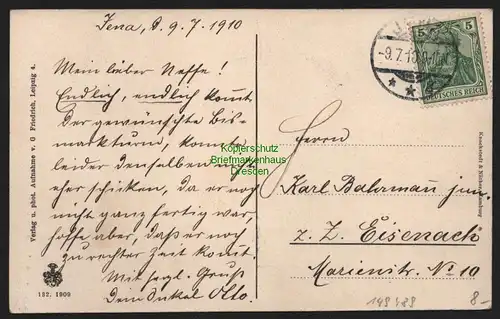 Jena, d. 9.7.1910
Mein lieber Neffe!
Endlich, endlich kommt
der gewünschte Bis-
markturm, konnte
leider denselben nicht
eher schicken, da er noch
nicht ganz fertig war,
hoffe aber, daß er noch
zu rechter Zeit komt.
Mit herzl. Gruß
Dein Onkel Otto.
Verlag u. phot. Aufnahme v. G. Friedrich, Leipzig 4.
132. 1909
-9.7.10
5 5
DEUTSCHES REICH
Herrn
Karl Bahrmann jun.
z. Z. Eisenach
Marienstr. No 10
Kopierschutz
Briefmarkenhaus
Dresden
149489
8-